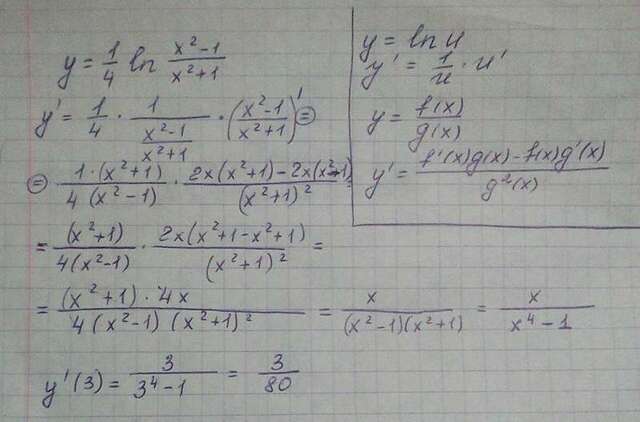 y = 1/4 ln (x² - 1)/(x² + 1)
y' = 1/4 · 1/((x² - 1)/(x² + 1)) · ((x² - 1)/(x² + 1))' =
= 1·(x² + 1)/(4(x² - 1)) · (2x(x² + 1) - 2x(x² - 1))/(x² + 1)² =
= (x² + 1)/(4(x² - 1)) · 2x(x² + 1 - x² + 1)/(x² + 1)² =
= (x² + 1) · 4x/(4(x² - 1)(x² + 1)²) = x/((x² - 1)(x² + 1)) = x/(x⁴ - 1)
y'(3) = 3/(3⁴ - 1) = 3/80
y = ln u
y' = 1/u · u'
y = f(x)/g(x)
y' = (f'(x)g(x) - f(x)g'(x))/g²(x)